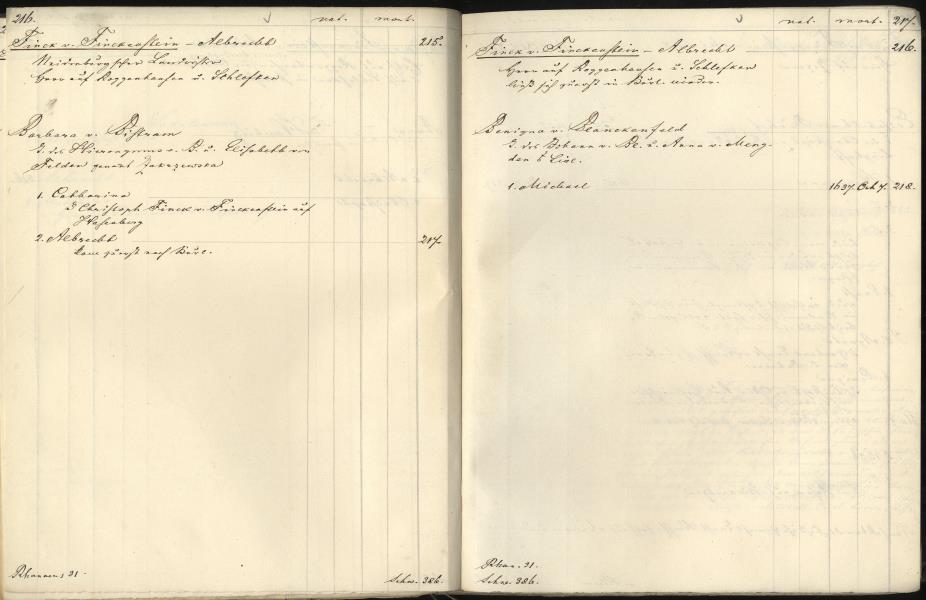 216.
nat.
mort.
Finck v. Finckenstein – Albrecht 215.
Neidenburgscher Landrichter
Herr auf Roggenhausen u. Schlefken
Barbara v. Bistram
T. des Hieronymus v. B. u. Elisabeth von
Felden genant Zakrzewska
1. Catharina
Christoph Finck v. Finckenstein auf
Hasenberg
2. Albrecht 217.
kam zuerst nach Kurl.
Rhannens 21.
Schw. 386.
nat.
mort.
217.
Finck v. Finckenstein – Albrecht 216.
Herr auf Roggenhausen u. Schlefken
ließ sich zuerst in Kurl. nieder.
Benigna v. Blanckenfeld
T. des Johann v. Bl. u. Anna v. Meng-
den Livl.
1. Michael 1637. Oct. 7. 218.
Rhan. 21.
Schw. 386.